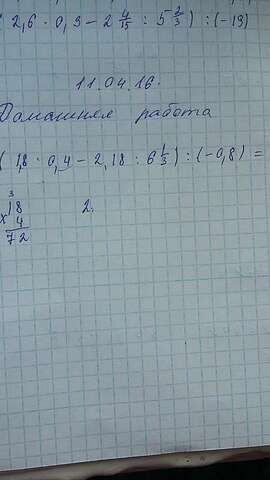 ( 2,6 · 0,3 - 2 4/15 : 5 2/3 ) : (-13)
11.04.16.
Домашнея работа
( 1,8 · 0,4 - 2,18 : 6 1/3 ) : (-0,8) =
3
18
× 4
72
2.